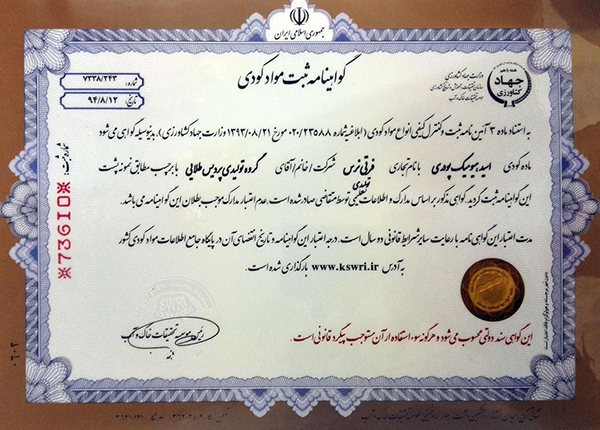 جمهوری اسلامی ایران
وزارت جهاد کشاورزی
جهاد
کشاورزی
شماره: ۷۳۳۸/۲۴۳
تاریخ: ۹۴/۸/۱۲
گواهینامه ثبت مواد کودی
به استناد ماده ۳ آئین نامه ثبت و کنترل کیفی انواع مواد کودی (ابلاغیه شماره ۰۲۰/۲۳۵۸۸ مورخ ۱۳۹۳/۰۸/۲۱ وزارت جهاد کشاورزی)، بدینوسیله گواهی می شود
ماده کودی اسید هیومیک پودری با نام تجاری فرتی نرس شرکت / خانم / آقای گروه تولیدی پردیس طلایی با برچسب مطابق نمونه پشت
تولیدی
این گواهینامه ثبت گردید. گواهی مذکور بر اساس مدارک و اطلاعات تسلیمی توسط متقاضی صادر شده است، عدم اعتبار مدارک موجب بطلان این گواهینامه می باشد.
مدت اعتبار این گواهی نامه با رعایت سایر شرایط قانونی دو سال است. درجه اعتبار این گواهینامه و تاریخ انقضای آن در پایگاه جامع اطلاعات مواد کودی کشور
به آدرس www.kswri.ir بارگذاری شده است.
شماره ثبت:
※73610※
SWRI
رئیس موسسه تحقیقات خاک و آب
این گواهی سند دولتی محسوب می شود و هرگونه سوء استفاده از آن مستوجب پیگرد قانونی است.
۰۶۰۲